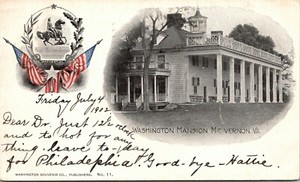 Friday July 4
1902
WASHINGTON MANSION MT. VERNON, VA.
Dear Dr. Just 12 o'clock
and to hot for any
thing. leave to-day
for Philadelphia Good-bye - Hattie.
WASHINGTON SOUVENIR CO., PUBLISHERS. No. 11.